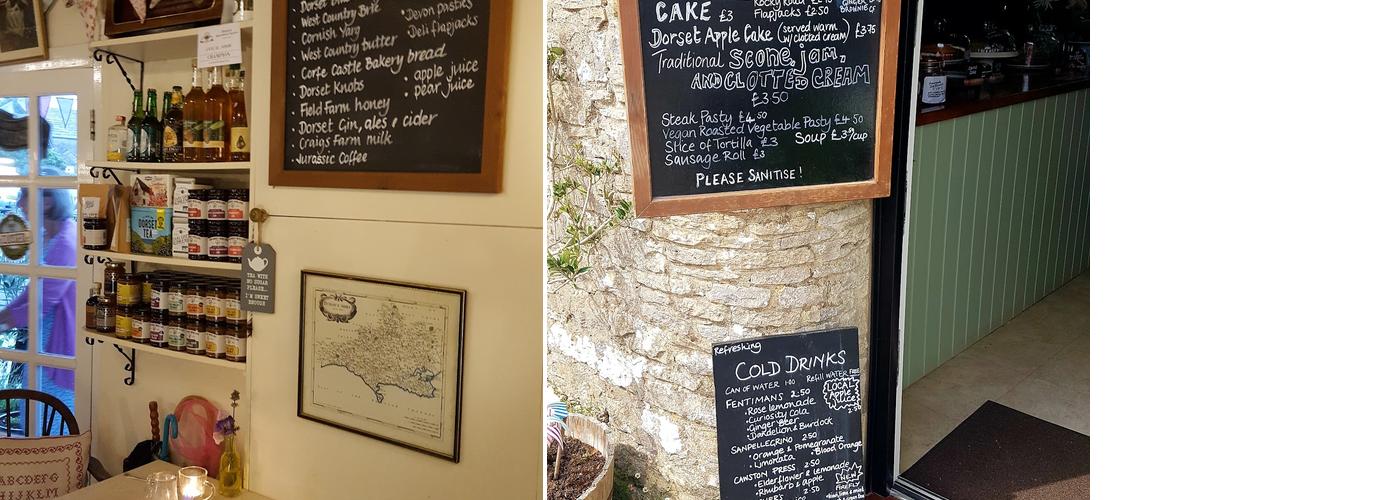 West Country Brie
Cornish Yarg
West Country butter
Corfe Castle Bakery bread
Dorset Knots
Field Farm honey
Dorset Gin, ales & cider
Craigs Farm milk
Jurassic Coffee
Devon pasties
Deli flapjacks
apple juice
pear juice
DORSET TEA
TEA WITH
NO SUGAR
PLEASE...
I'M SWEET
ENOUGH
CAKE £3
Flapjacks £2.50
GINGER
BROWNIE GF
Dorset Apple Cake (served warm w/clotted cream) £3.75
Traditional Scone, jam,
AND CLOTTED CREAM
£3.50
Steak Pasty £4.50
Vegan Roasted Vegetable Pasty £4.50
Slice of Tortilla £3
Soup £3.95/cup
Sausage Roll £3
PLEASE SANITISE!
Refreshing
COLD DRINKS
CAN OF WATER 1.00 Refill WATER FREE
FENTIMANS 2.50
Rose lemonade
Curiosity Cola
Ginger Beer
Dandelion & Burdock
LOCAL
Apple
Juice
2.50
SANPELLEGRINO 2.50
Orange & Pomegranate
Limonata
Blood Orange
CAWSTON PRESS 2.50
Elderflower & lemonade
Rhubarb & apple 2.50
NEW
FIREFLY